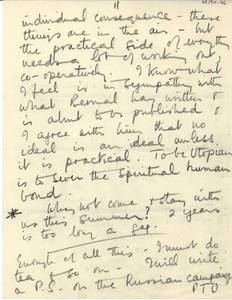 11
individual consequence - these
things are in the air - but
the practical side of everything
needs a lot of working out
co-operatively. I know what
I feel is in sympathy with
what Bernal has written &
is about to be published &
I agree with him that no
ideal is an ideal unless
it is practical. To be Utopian
is to sever the Spiritual human
bond.
* Why not come & stay with
us this Summer? 2 years
is too long a gap.
Enough of all this - I must do
tea & so on - I will write
a P.S. on the Russian campaign
PTO